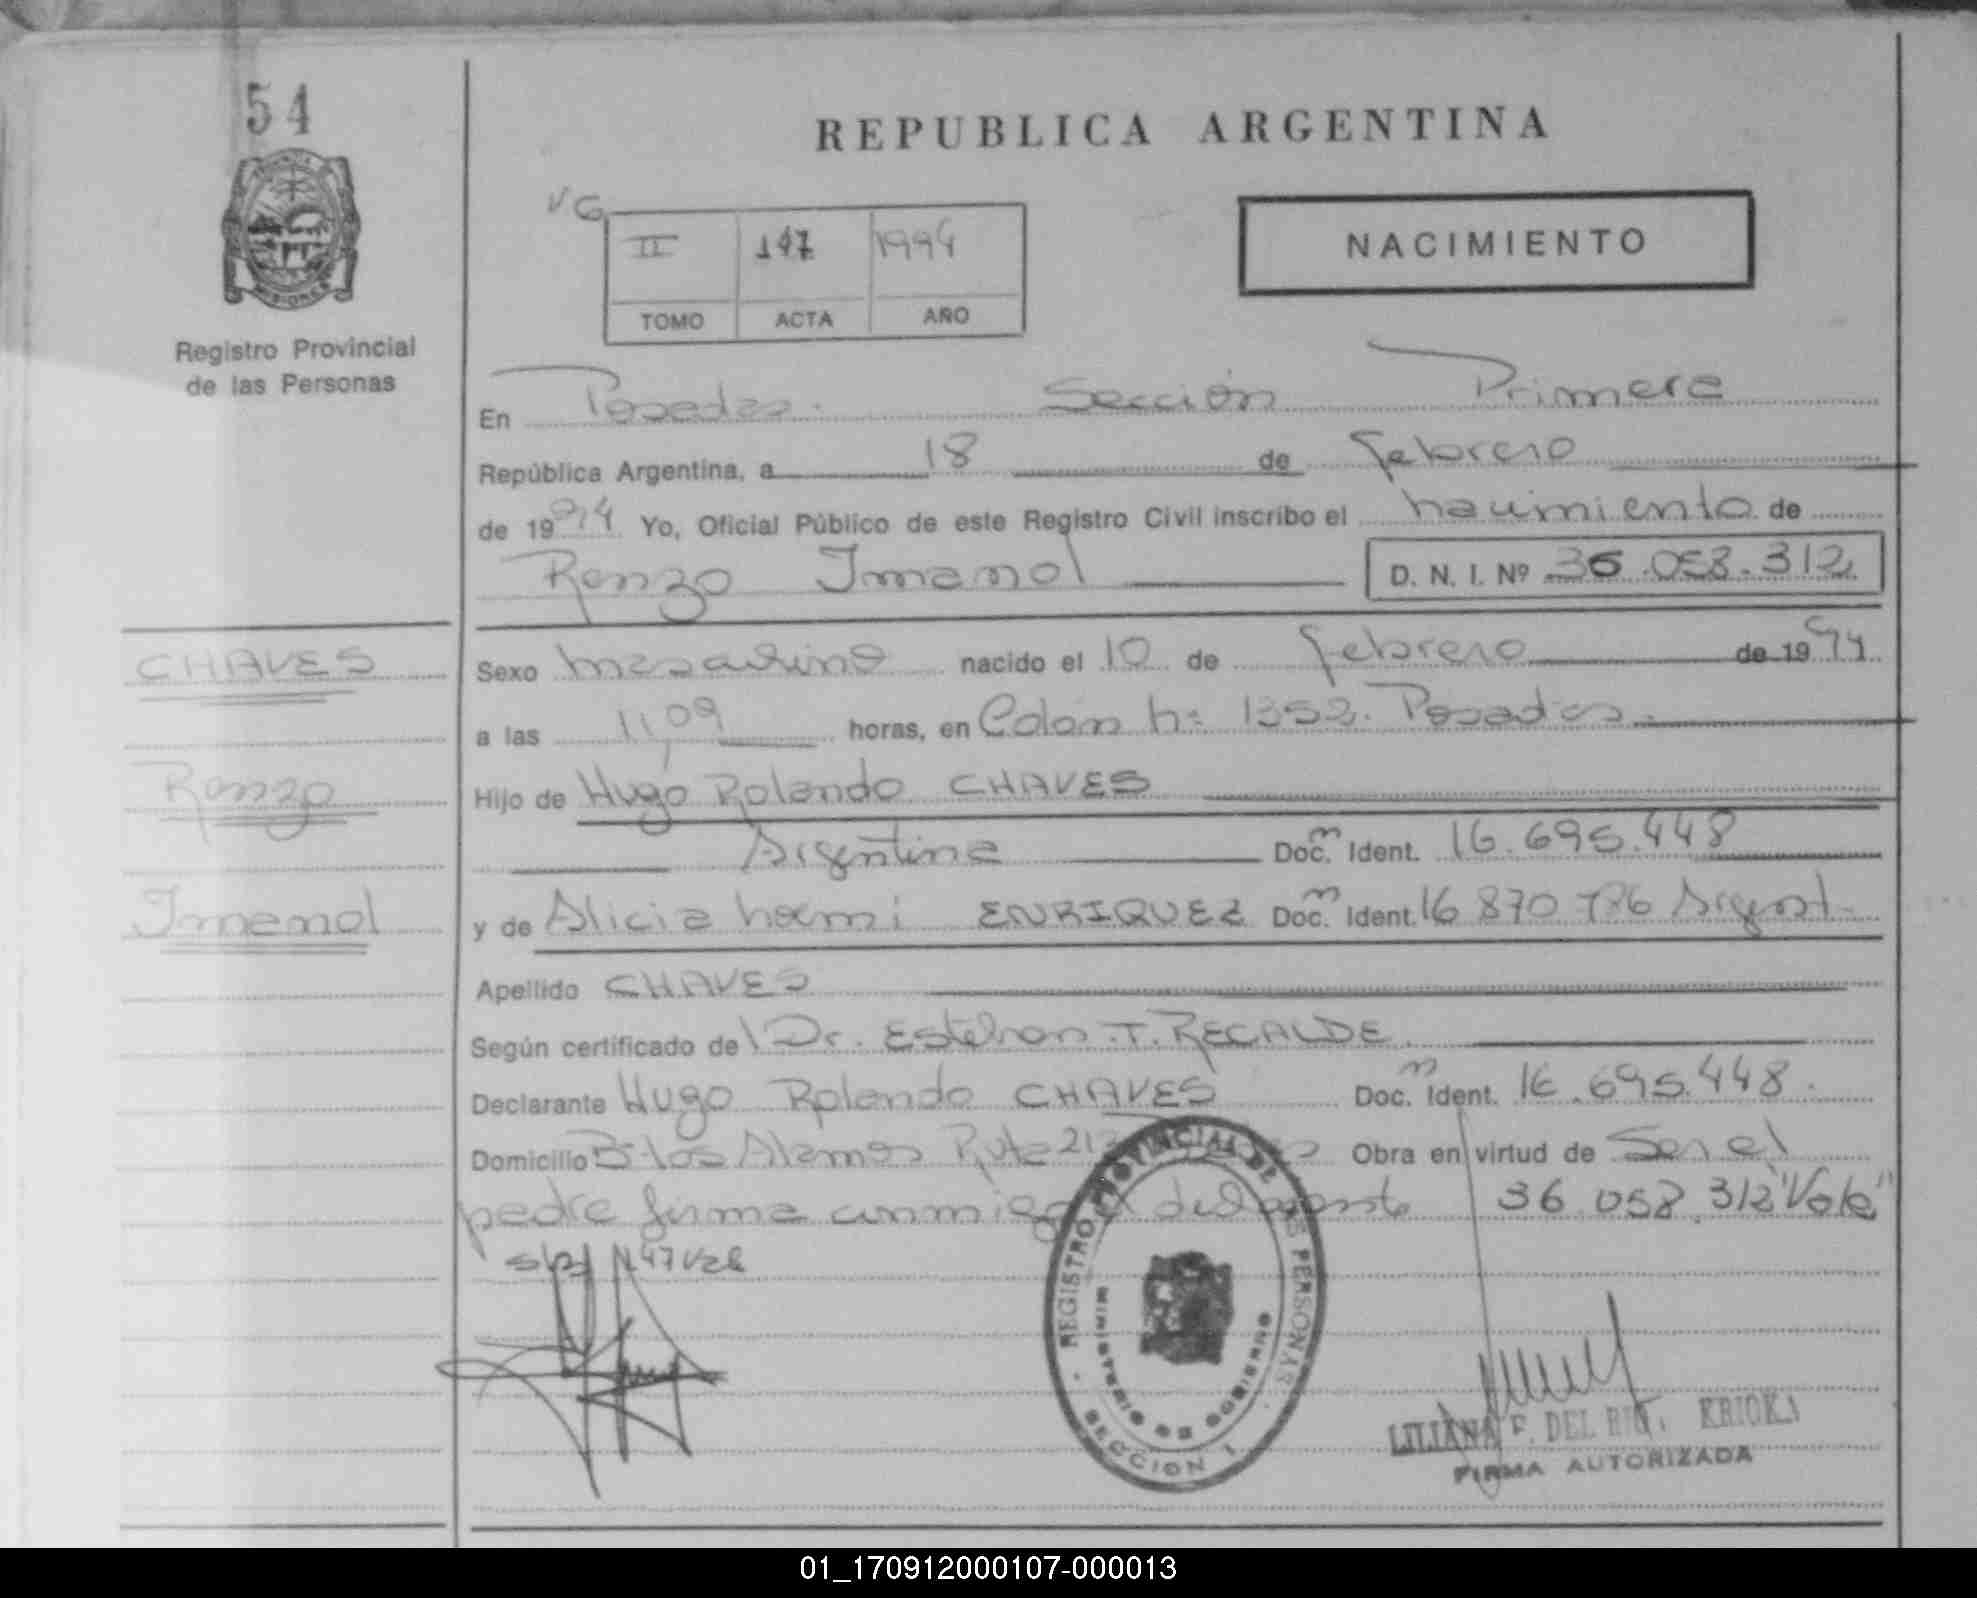 54
REPUBLICA ARGENTINA
VG
II 147 1994
TOMO ACTA AÑO
NACIMIENTO
MISIONES
Registro Provincial
de las Personas
En Posadas. Sección Primera
República Argentina, a 18 de febrero
de 1994 Yo, Oficial Público de este Registro Civil inscribo el nacimiento de
Renzo Imanol D. N. I. Nº 36.058.312
CHAVES
Sexo masculino nacido el 10 de febrero de 1994
a las 11,09 horas, en Colón nº 1352. Posadas.
Renzo
Hijo de Hugo Rolando CHAVES
Argentina Doc. m Ident. 16.695.448
Imanol
y de Alicia Noemi ENRIQUEZ Doc. m Ident. 16 870 786 Argent.
Apellido CHAVES
Según certificado de Dr. Esteban T. RECALDE
Declarante Hugo Rolando CHAVES Doc. m Ident. 16.695.448.
Domicilio Bº Los Alamos Ruta 213 Obra en virtud de Ser el
padre firma conmigo 36.058.312 "Vale"
s/r 147 Vale
REGISTRO PROVINCIAL DE LAS PERSONAS
MINISTERIO DE GOBIERNO
SECCION 1
LILIANA F. DEL KRIOKA
FIRMA AUTORIZADA
01_170912000107-000013